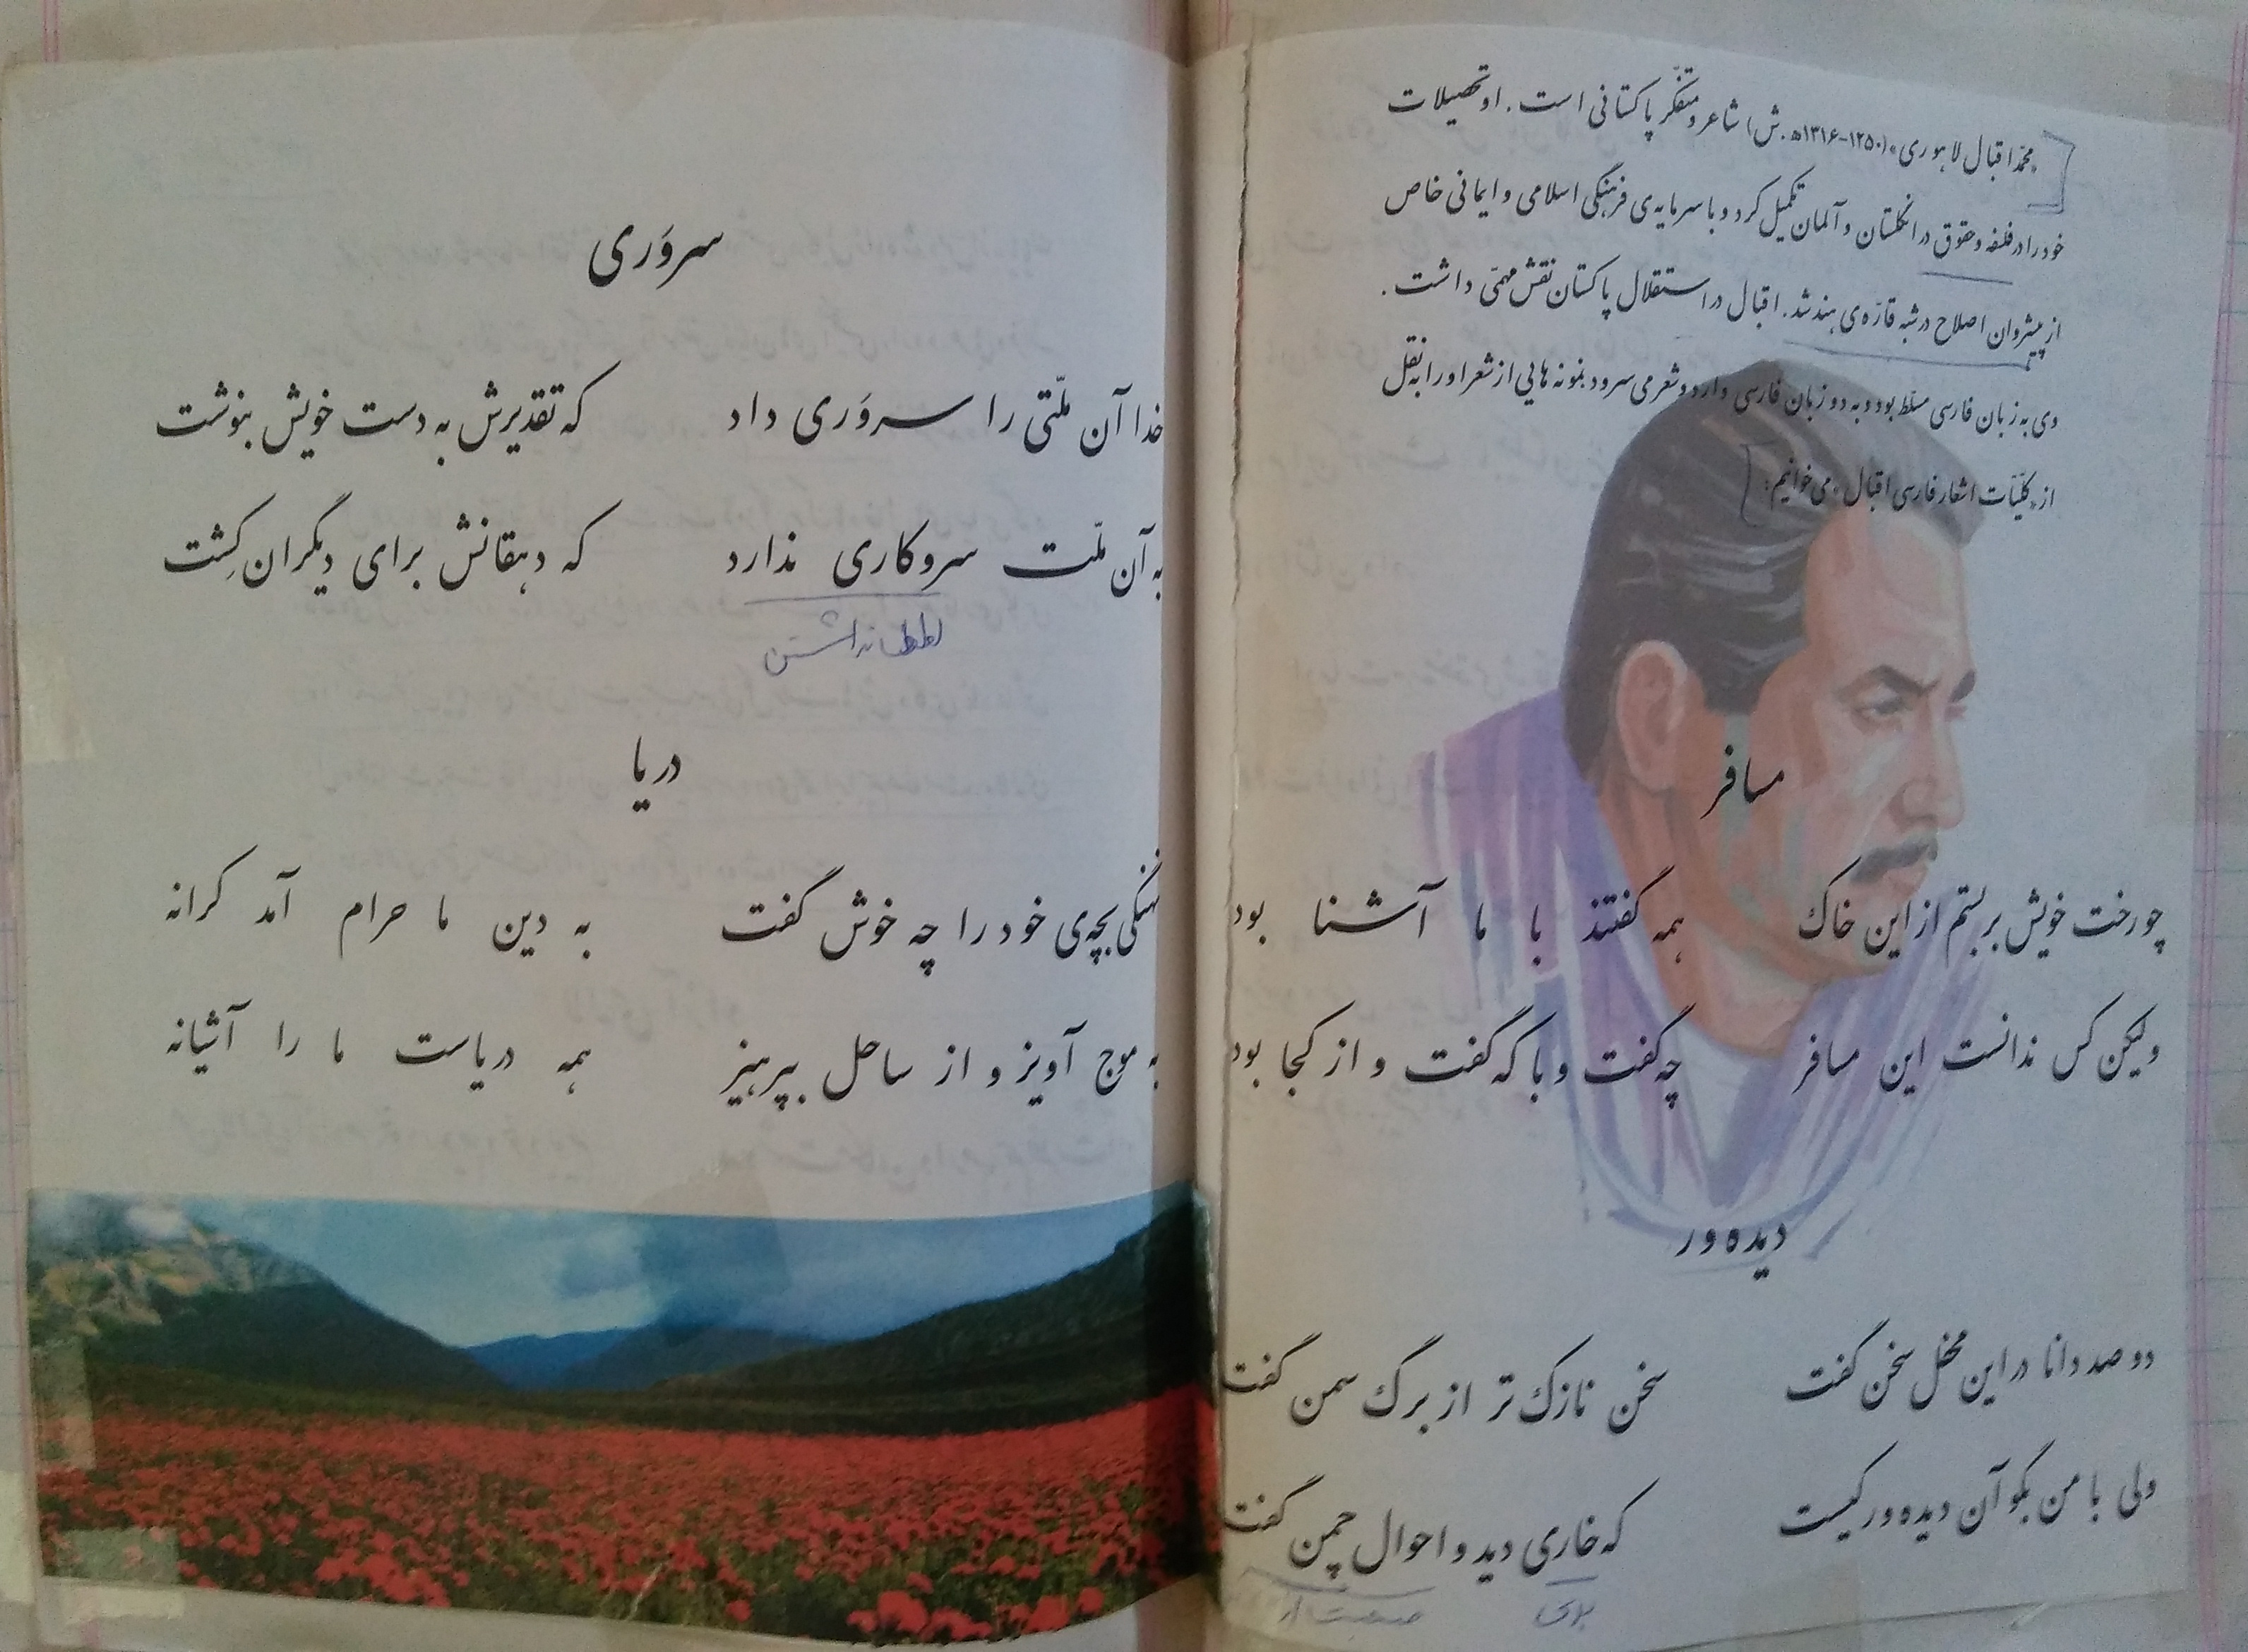 «محمّد اقبال لاهوری» (۱۲۵۰-۱۳۱۶ه‍.ش) شاعر و متفکّر پاکستانی است. او تحصیلات
خود را در فلسفه و حقوق در انگلستان و آلمان تکمیل کرد و با سرمایه‌ی فرهنگی اسلامی و ایمانی خاص
از پیشروان اصلاح در شبه قارّه‌ی هند شد. اقبال در استقلال پاکستان نقش مهمّی داشت.
وی به زبان فارسی مسلّط بود و به دو زبان فارسی و اردو شعر می سرود. نمونه هایی از شعر او را به نقل
از «کلیّات اشعار فارسی اقبال» می خوانیم:
مسافر
چو رخت خویش بر بستم از این خاک همه گفتند با ما آشنا بود
ولیکن کس ندانست این مسافر چه گفت و با که گفت و از کجا بود
دیده ور
دو صد دانا در این محفل سخن گفت سخن نازک تر از برگ سمن گفت
ولی با من بگو آن دیده ور کیست که خاری دید و احوال چمن گفت
سروَری
خدا آن ملّتی را سروَری داد که تقدیرش به دست خویش بنوشت
به آن ملّت سروکاری ندارد که دهقانش برای دیگران کِشت
نداشتن
دریا
نهنگی بچه‌ی خود را چه خوش گفت به دین ما حرام آمد کرانه
به موج آویز و از ساحل بپرهیز همه دریاست ما را آشیانه